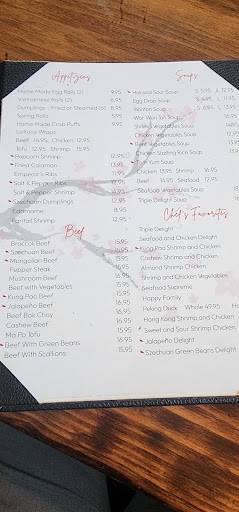 Appetizers
Home Made Egg Rolls (2) 9.95
Vietnamese Rolls (2) 8.95
Dumplings - Fried or Steamed (8) 8.95
Spring Rolls 5.95
Home-Made Crab Puffs 9.95
Lettuce Wraps
Beef 14.95 Chicken 12.95
Tofu 12.95 Shrimp 15.95
Popcorn Shrimp 12.95
Fried Calamari 13.95
Emperor's Ribs
Salt & Pepper Ribs
Salt & Pepper Shrimp
Szechuan Dumplings 12.95
Edamame 8.95
Fantail Shrimp 12.95
Beef
Broccoli Beef 15.95
Szechuan Beef 15.95
Mongolian Beef 16.95
Pepper Steak 16.95
Mushroom Beef 16.95
Beef with Vegetables 15.95
Kung Pao Beef 16.95
Jalapeño Beef 16.95
Beef Bok Choy 16.95
Cashew Beef 16.95
Ma Po Tofu 15.95
Beef With Green Beans 16.95
Beef With Scallions 15.95
Soups
Hot and Sour Soup S 5.95 L 12.95
Egg Drop Soup
Wonton Soup
War Won Ton Soup
Shrimp Vegetables Soup
Chicken Vegetables Soup
Beef Vegetables Soup
Chicken Sizzling Rice Soup
Yum Soup
Chicken 13.95 Shrimp 16.95
Beef 14.95 Seafood
Seafood Vegetables Soup
Triple Delight Soup
Chef's Favorites
Triple Delight
Seafood and Chicken Delight
Kung Pao Shrimp and Chicken
Cashew Shrimp and Chicken
Almond Shrimp Chicken
Shrimp and Chicken Vegetables
Seafood Supreme
Happy Family
Peking Duck Whole 49.95
Hong Kong Shrimp and Chicken
Sweet and Sour Shrimp Chicken
Jalapeño Delight
Szechuan Green Beans Delight